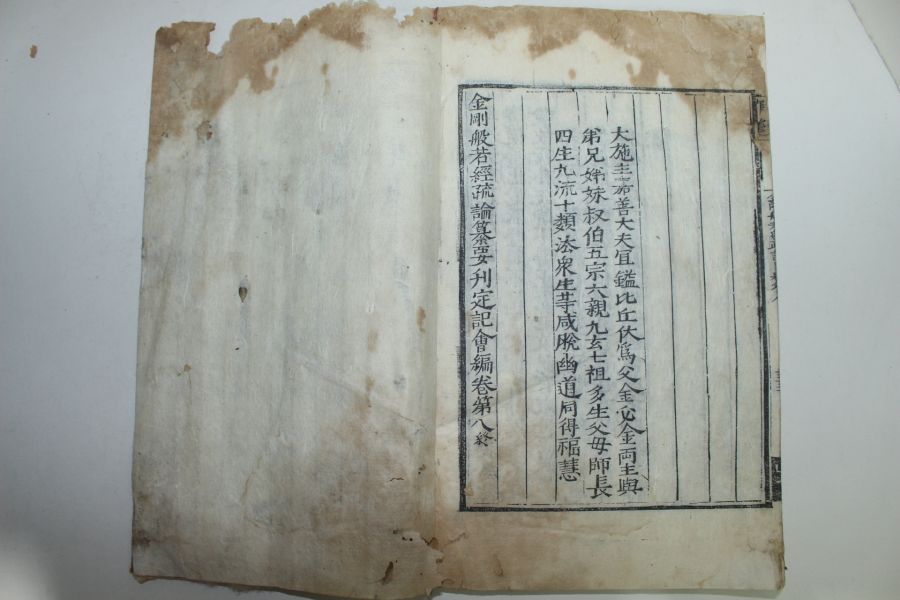 大施主嘉善大夫冝鑑比丘伏爲父金公金両主與
弟兄姊妹叔伯五宗六親九玄七祖多生父母師長
四生九流十類法衆生等咸脫幽道同得福慧
金剛般若經疏論纂要刊定記會編卷第八終